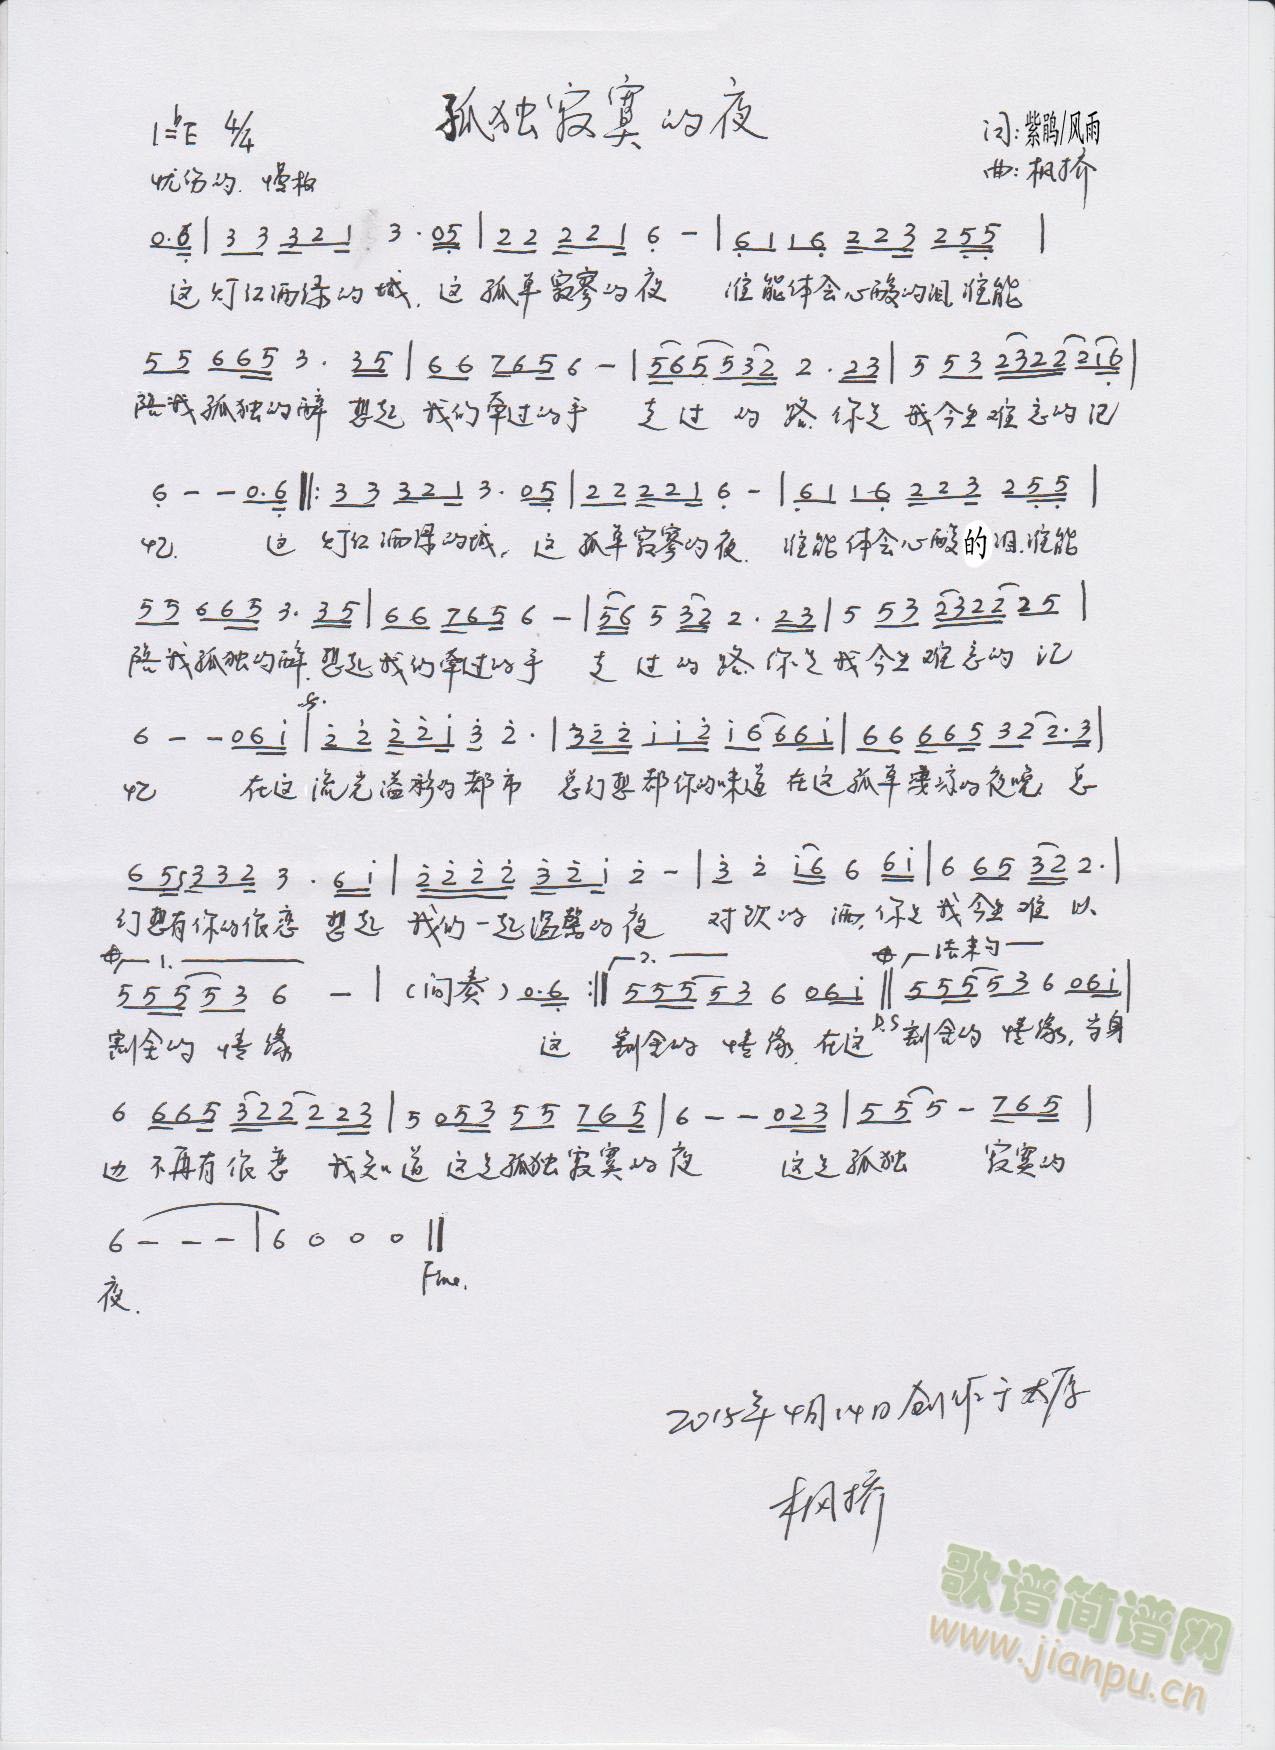 孤独寂寞的夜
1=♭E 4/4
词:紫鹃/风雨
忧伤的.慢板
曲:枫桥
0.6 | 3 3 3 2 1 3 . 0 5 | 2 2 2 2 1 6 - | 6 1 1 6 2 2 3 2 5 5 |
这灯红酒绿的城,这孤单寂寥的夜 谁能体会心酸的泪,谁能
5 5 6 6 5 3 . 3 5 | 6 6 7 6 5 6 - | 5 6 5 5 3 2 2 . 2 3 | 5 5 3 2 3 2 2 2 1 6 |
陪我孤独的醉 想起我们牵过的手 走过的路.你是我今生难忘的记
6 - - 0.6 ‖: 3 3 3 2 1 3 . 0 5 | 2 2 2 2 1 6 - | 6 1 1 6 2 2 3 2 5 5 |
忆. 这灯红酒绿的城,这孤单寂寥的夜.谁能体会心酸的泪.谁能
5 5 6 6 5 3 . 3 5 | 6 6 7 6 5 6 - | 5 6 5 3 2 2 . 2 3 | 5 5 3 2 3 2 2 2 5 |
陪我孤独的醉.想起我们牵过的手 走过的路.你是我今生难忘的记
6 - - 0 6 i | 2 2 2 2 i 3 2 . | 3 2 2 i i 2 i 6 6 6 i | 6 6 6 6 5 3 2 2 . 3 |
忆 在这流光溢彩的都市 总幻想都你的味道 在这孤单凄凉的夜晚.总
6 5 5 3 3 2 3 . 6 i | 2 2 2 2 3 2 i 2 - | 3 2 i 6 6 6 i | 6 6 5 3 2 2 . |
幻想有你的依恋 想起我们一起温馨的夜 对饮的酒.你是我今生难以
1. 2. 结束句
5 5 5 5 3 6 - | (间奏) 0.6 :‖ 5 5 5 5 3 6 0 6 i ‖ 5 5 5 5 3 6 0 6 i |
D.S
割舍的情缘 这 割舍的情缘.在这 割舍的情缘,当身
6 6 6 5 3 2 2 2 2 3 | 5 0 5 3 5 5 7 6 5 | 6 - - 0 2 3 | 5 5 5 - 7 6 5 |
边不再有依恋 我知道这是孤独寂寞的夜 这是孤独 寂寞的
6 - - - | 6 0 0 0 ‖
夜. Fine.
2015年4月14日创作于太原
枫桥
歌谱简谱网
www.jianpu.cn